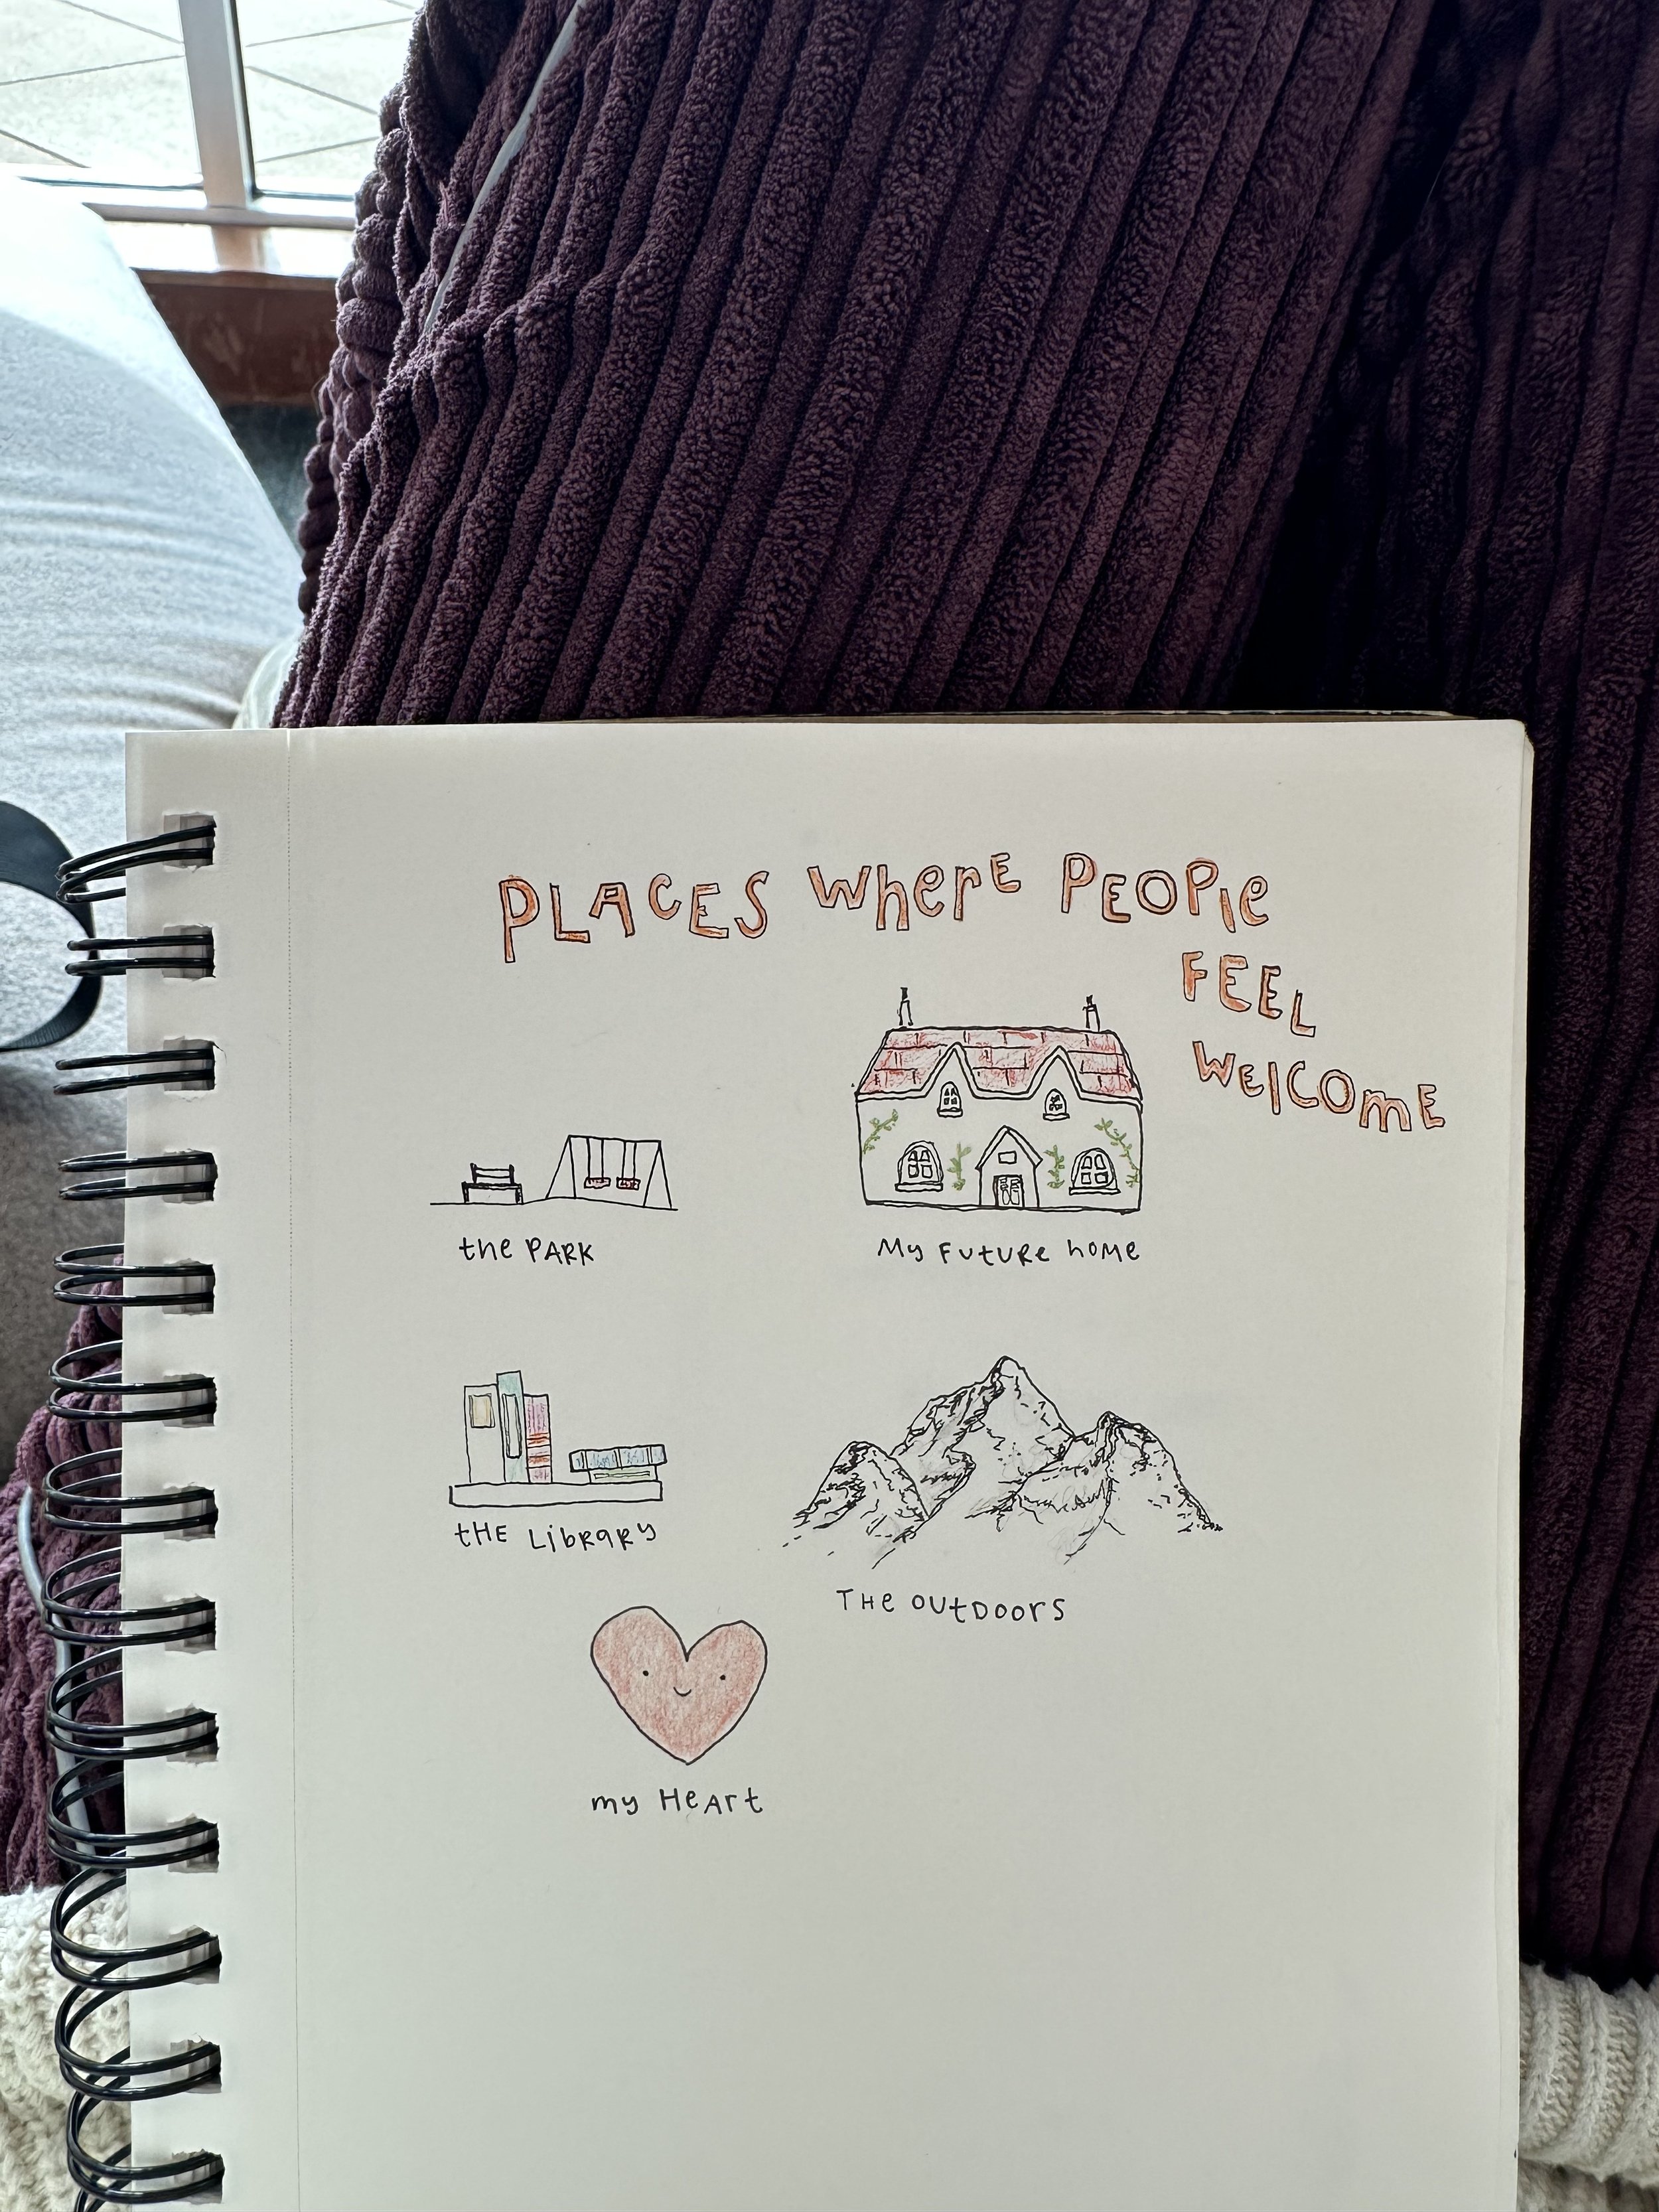 PLACES where PEOPlE
FEEL
WElCOmE
the PARK
My FutuRe hoMe
tHE LibRaRy
THe OUtDOOrS
my HeArt